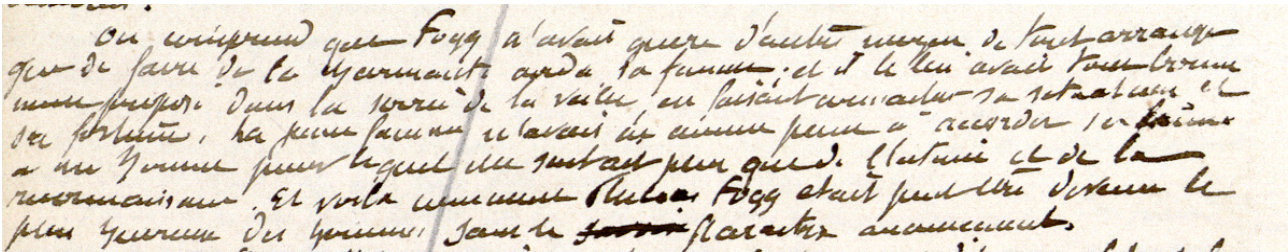 On comprend que Fogg n'avait guère d'autre moyen de tout arranger
que de faire de la charmante Aouda sa femme ; et il le lui avait tout bonne
ment proposé dans la soirée de la veille, en faisant connaître sa situation et
sa fortune. La jeune femme n'avait eu aucune peine à accorder sa main
à un homme pour lequel elle sentait plus que de l'estime et de la
reconnaissance. Et voilà comment Phileas Fogg était peut être devenu le
plus heureux des hommes sans le paraître aucunement.